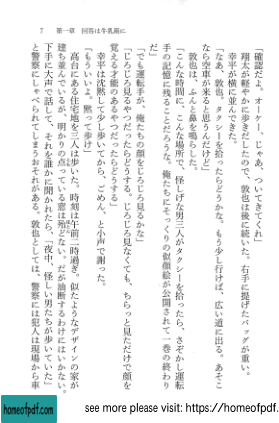 7　第一章　回答は牛乳箱に
「確認だよ。オーケー、じゃあ、ついてきてくれ」
翔太が軽やかに歩きだしたので、敦也は後に続いた。右手に提げたバッグが重い。
幸平が横に並んできた。
「なあ、敦也、タクシーを拾ったらどうかな。もう少し行けば、広い道に出る。あそこ
なら空車が来ると思うんだけど」
敦也は、ふんと鼻を鳴らした。
「こんな時間に、こんな場所で、怪しげな男三人がタクシーを拾ったら、さぞかし運転
手の記憶に残ることだろうな。俺たちにそっくりの似顔絵が公開されて一巻の終わり
だ」
「でも運転手が、俺たちの顔をじろじろ見るかな」
「じろじろ見るやつだったらどうする。じろじろ見なくても、ちらっと見ただけで顔を
覚える才能のあるやつだったらどうする」
幸平は沈黙して少し歩いてから、ごめん、と小声で謝った。
「もういいよ。黙って歩け」
高台にある住宅地を三人は歩いた。時刻は午前二時過ぎ。似たようなデザインの家が
建ち並んでいるが、明かりの点っている窓は殆どない。だが油断するわけにはいかない。
下手に大声で話して、それを誰かに聞かれたら、「夜中、怪しい男たちが歩いていた」
と警察にしゃべられてしまうおそれがある。敦也としては、警察には犯人は現場から車
homeofpdf.com
see more please visit: https://homeofpdf.